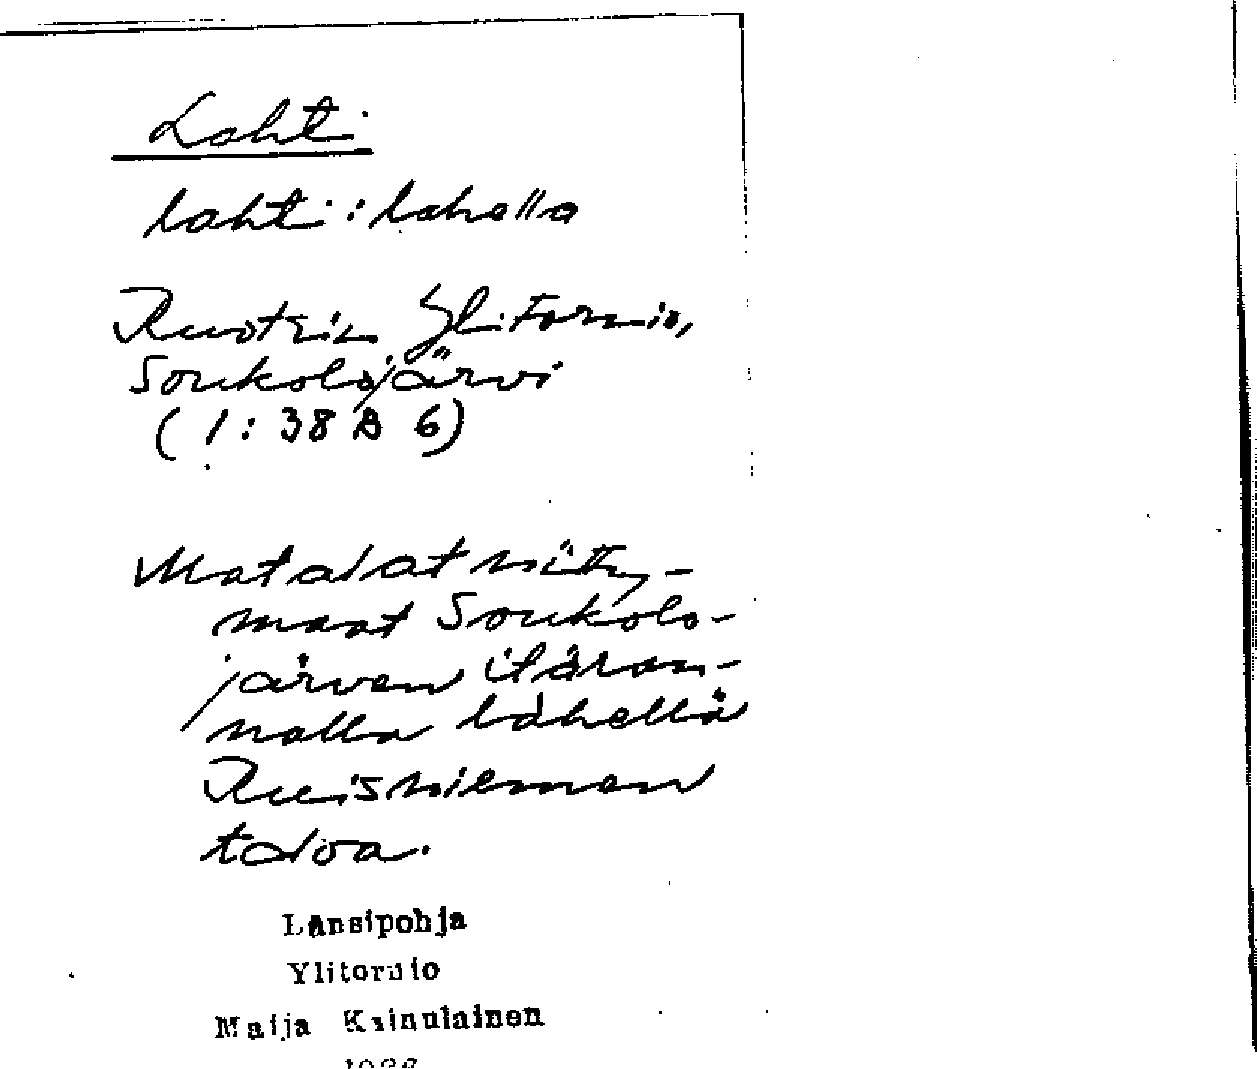 Lahti
lahti : lahella
Ruotsin Ylitornio,
Soukolojärvi
(1:38 B 6)
Matalat niitty-
maat Soukolo-
järven itäran-
nalla lähellä
Ruisniemen
taloa.
Länsipohja
Ylitornio
Maija Kainulainen